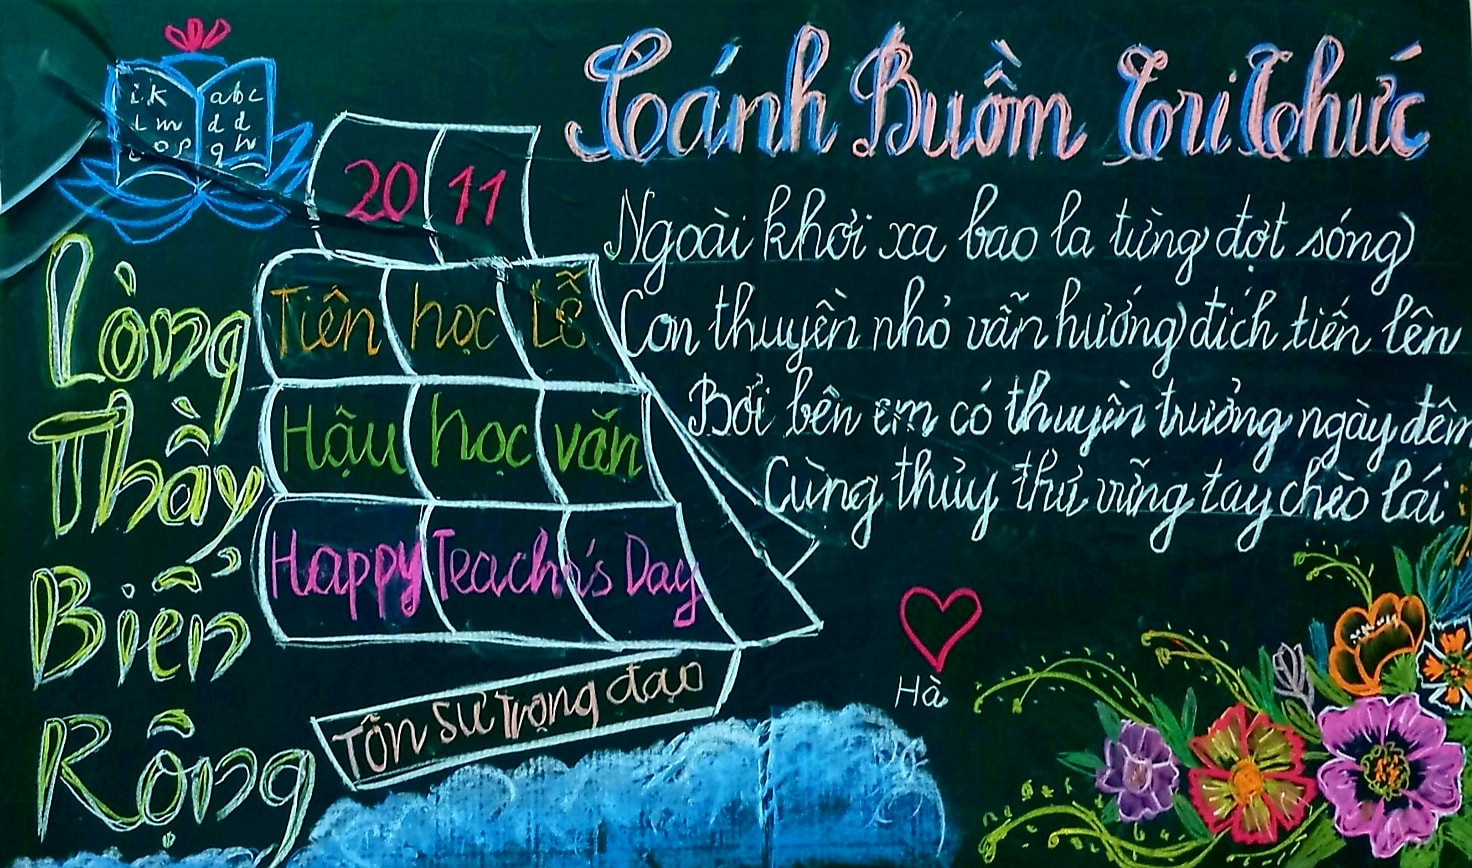 Cánh Buồm Tri Thức
i.k abc
l m d d
o p q h
20 11
Ngoài khơi xa bao la từng đợt sóng
Con thuyền nhỏ vẫn hướng đích tiến lên
Bởi bên em có thuyền trưởng ngày đêm
Cùng thủy thủ vững tay chèo lái
Lòng
Thầy
Biển
Rộng
Tiên học Lễ
Hậu học văn
Happy Teach's Day
Tôn sư trọng đạo
Hà